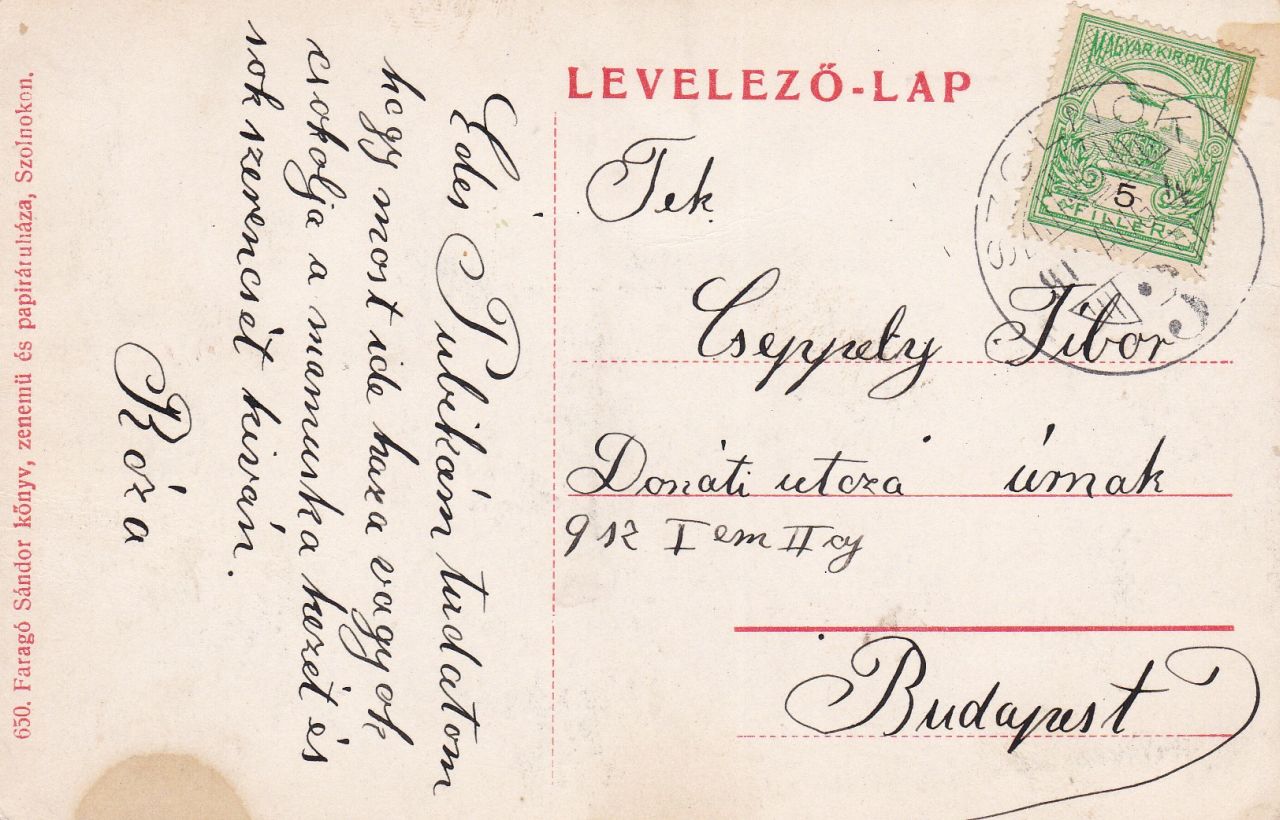 LEVELEZŐ-LAP
MAGYAR KIR. POSTA
5
FILLÉR
SZOLNOK
Tek
Cseppely Tibor
Donáti utcza úrnak
912 I em II
Budapest
Édes Pubikám tudatom
hogy most ide haza vagyok
csokolja a mamuska kezét és
sok szerencsét kiván.
Róza
650. Faragó Sándor könyv, zenemű és papírárúháza, Szolnokon.